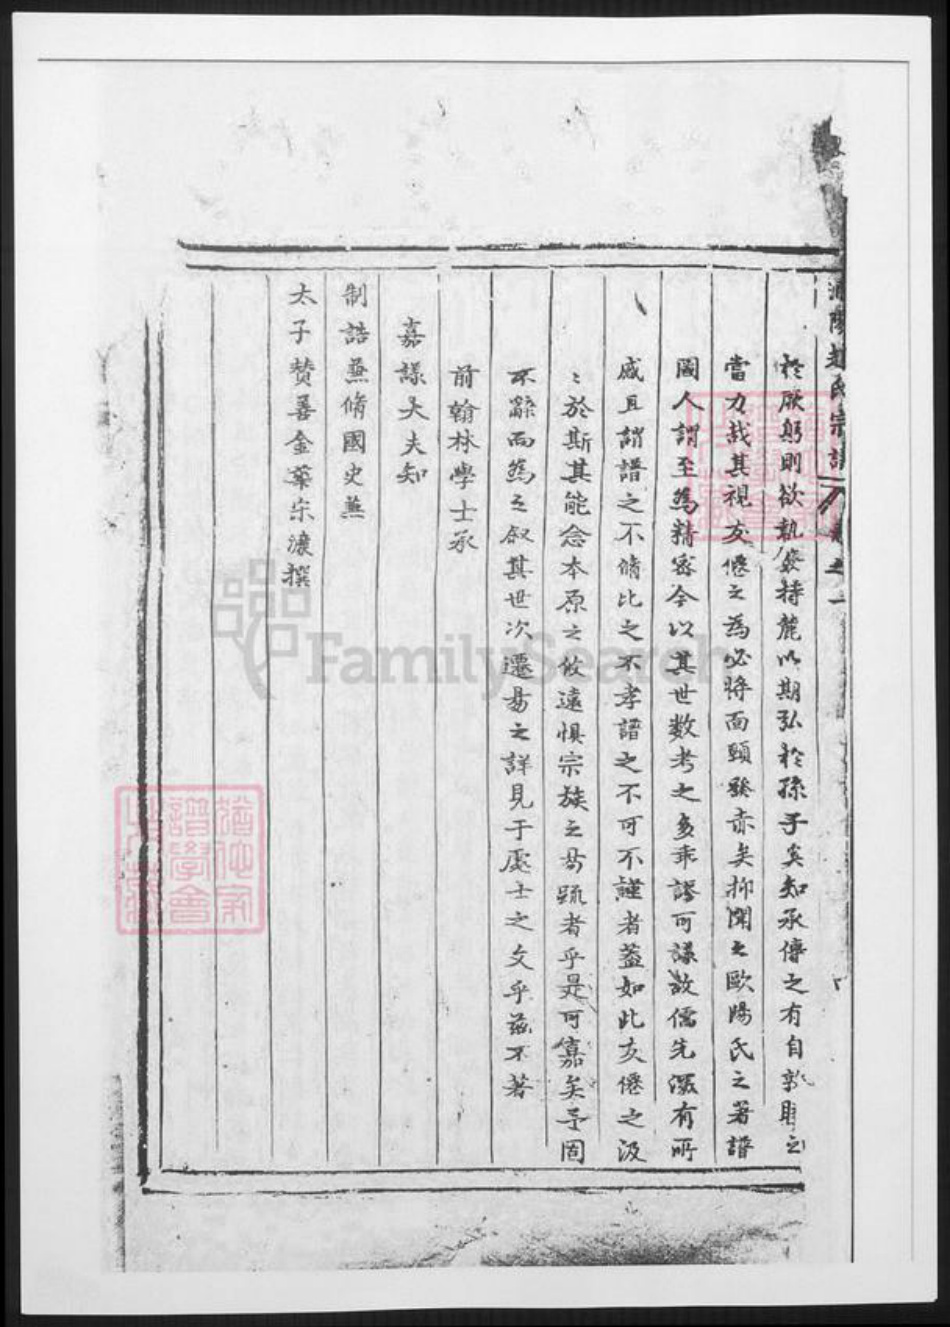 趙氏宗譜 卷之一
於厥躬則欲執發持蔍以期弘於孫子矣知承傳之有自敦睦之
當力哉其視友僊之為必將面頸發赤矣抑聞之歐陽氏之著譜
國人謂至為精密今以其世数考之多乖謬可議故儒先深有所
感且謂譜之不脩比之不孝譜之不可不謹者蓋如此友僊之汲
〻於斯其能念本原之攸遠惧宗族之易疏者乎是可嘉矣予固
不辭而為之叙其世次遷易之詳見于處士之文乎茲不著
前翰林學士承
嘉議大夫知
制誥兼脩國史兼
太子贊善金華宋濂撰
FamilySearch